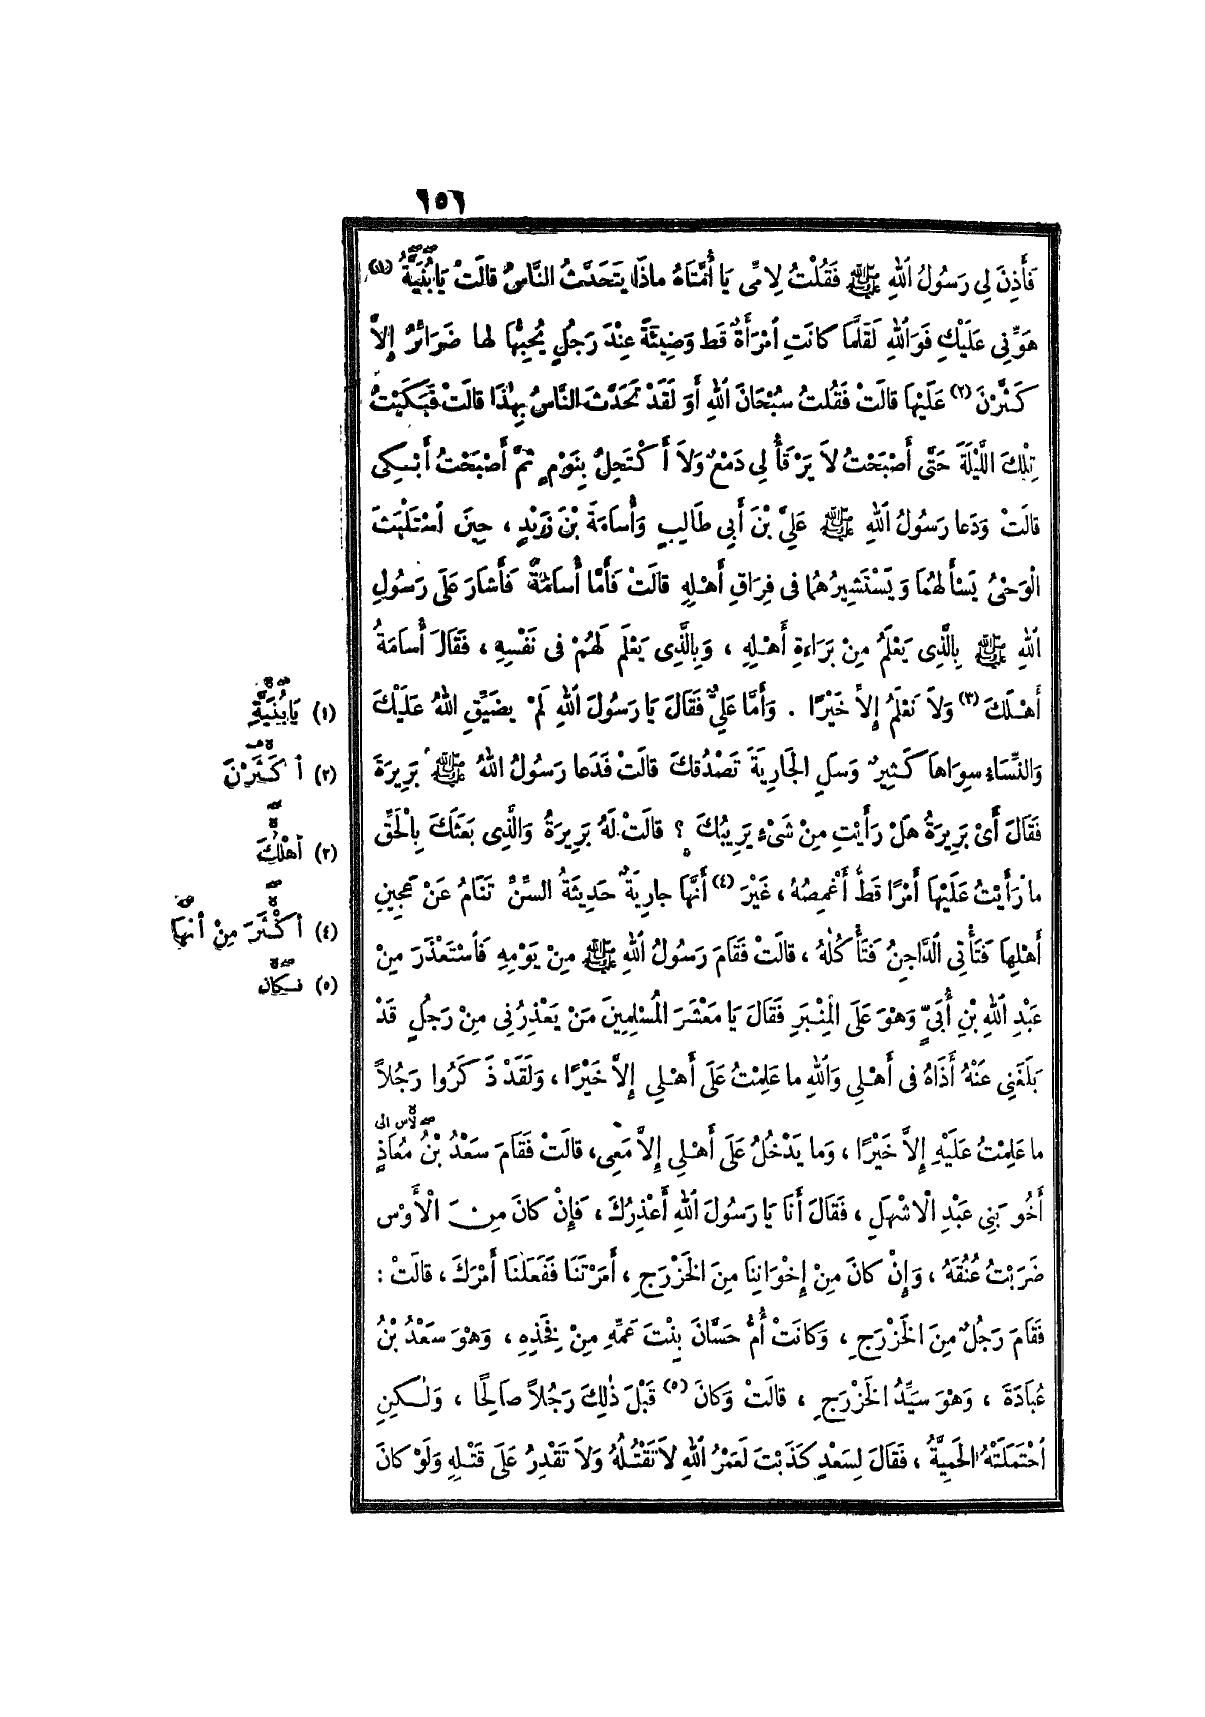 ٦٥٦
فَأَذِنَ لِي رَسُولُ اللهِ ﷺ فَقُلْتُ لِأمِّى يَا أُمَّتَاهُ ماذَا يَتَحَدَّثُ النَّاسُ قالَتْ يَا بُنَيَّةُ (١)
هَوِّنِى عَلَيْكِ فَوَاللهِ لَقَلَّمَا كانَتِ امْرَأَةٌ قَطُّ وَضِيئَةً عِنْدَ رَجُلٍ يُحِبُّهَا لها ضَرَائِرُ إِلاَّ
كَثَّرْنَ (٢) عَلَيْهَا قالَتْ فَقُلْتُ سُبْحَانَ اللهِ أَوَ لَقَدْ تَحَدَّثَ النَّاسُ بِهٰذَا قالَتْ فَبَكَيْتُ
تِلْكَ اللَّيْلَةَ حَتَّى أَصْبَحْتُ لاَ يَرْقَأُ لِى دَمْعٌ وَلاَ أَكْتَحِلُ بِنَوْمٍ ثُمَّ أَصْبَحْتُ أَبْكِى
قالَتْ وَدَعا رَسُولُ اللهِ ﷺ عَلِىَّ بْنَ أَبِى طَالِبٍ وَأُسَامَةَ بْنَ زَيْدٍ ، حِينَ اسْتَلْبَثَ
الْوَحْىُ يَسْأَلُهُمَا وَيَسْتَشِيرُهُمَا فى فِرَاقِ أَهْلِهِ قالَتْ فَأَمَّا أُسَامَةُ فَأَشَارَ عَلَى رَسُولِ
اللهِ ﷺ بِالَّذِى يَعْلَمُ مِنْ بَرَاءَةِ أَهْلِهِ ، وَبِالَّذِى يَعْلَمُ لَهُمْ فى نَفْسِهِ ، فَقَالَ أُسَامَةُ
أَهْلَكَ (٣) وَلاَ نَعْلَمُ إِلاَّ خَيْرًا . وَأَمَّا عَلِىٌّ فَقَالَ يَا رَسُولَ اللهِ لَمْ يُضَيِّقِ اللهُ عَلَيْكَ
وَالنِّسَاءُ سِوَاهَا كَثِيرٌ وَسَلِ الجَارِيَةَ تَصْدُقْكَ قالَتْ فَدَعا رَسُولُ اللهُ ﷺ بَرِيرَةَ
فَقَالَ أَىْ بَرِيرَةُ هَلْ رَأَيْتِ مِنْ شَىْءٍ يَرِيبُكَ ؟ قالَتْ لَهُ بَرِيرَةُ وَالَّذِى بَعَثَكَ بِالْحَقِّ
ما رَأَيْتُ عَلَيْهَا أَمْرًا قَطُّ أَغْمِصُهُ ، غَيْرَ (٤) أَنَّهَا جارِيَةٌ حَدِيثَةُ السِّنِّ تَنَامُ عَنْ عَجِينِ
أَهْلِهَا فَتَأْتِى الدَّاجِنُ فَتَأْكُلُهُ ، قالَتْ فَقَامَ رَسُولُ اللهِ ﷺ مِنْ يَوْمِهِ فَاسْتَعْذَرَ مِنْ
عَبْدِ اللهِ بْنِ أُبَىٍّ وَهْوَ عَلَى الْمِنْبَرِ فَقَالَ يَا مَعْشَرَ الْمُسْلِمِينَ مَنْ يَعْذِرُنِى مِنْ رَجُلٍ قَدْ
بَلَغَنِى عَنْهُ أَذَاهُ فى أَهْلِى وَاللهِ ما عَلِمْتُ عَلَى أَهْلِى إِلاَّ خَيْرًا ، وَلَقَدْ ذَكَرُوا رَجُلاً
ما عَلِمْتُ عَلَيْهِ إِلاَّ خَيْرًا ، وَما يَدْخُلُ عَلَى أَهْلِى إِلاَّ مَعِى، قالَتْ فَقَامَ سَعْدُ بْنُ مُعَاذٍ
أَخُو بَنِى عَبْدِ الْاشْهَلِ ، فَقَالَ أَنَا يَا رَسُولَ اللهِ أَعْذِرُكَ ، فَإِنْ كانَ مِنَ الْأَوْسِ
ضَرَبْتُ عُنُقَهُ ، وَإِنْ كانَ مِنْ إِخْوَانِنَا مِنَ الخَزْرَجِ ، أَمَرْتَنَا فَفَعَلْنَا أَمْرَكَ ، قالَتْ :
فَقَامَ رَجُلٌ مِنَ الخَزْرَجِ ، وَكانَتْ أُمُّ حَسَّانَ بِنْتَ عَمِّهِ مِنْ فَخِذِهِ ، وَهْوَ سَعْدُ بْنُ
عُبَادَةَ ، وَهْوَ سَيِّدُ الخَزْرَجِ ، قالَتْ وَكانَ (٥) قَبْلَ ذٰلِكَ رَجُلاً صَالِحًا ، وَلٰكِنِ
احْتَمَلَتْهُ الحَمِيَّةُ ، فَقَالَ لِسَعْدٍ كَذَبْتَ لَعَمْرُ اللهِ لاَ تَقْتُلُهُ وَلاَ تَقْدِرُ عَلَى قَتْلِهِ وَلَوْ كانَ
(١) يَا بُنَيَّةِ
(٢) أَكْثَرْنَ
(٣) أَهْلُكَ
(٤) أَكْثَرَ مِنْ أَنَّهَا
(٥) فَكانَ